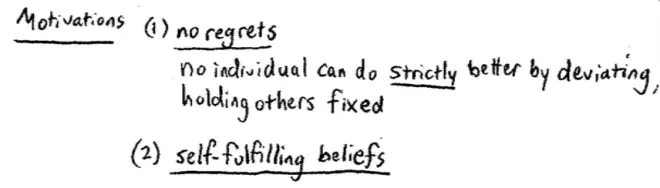 Motivations (1) no regrets
no individual can do strictly better by deviating,
holding others fixed
(2) self-fulfilling beliefs